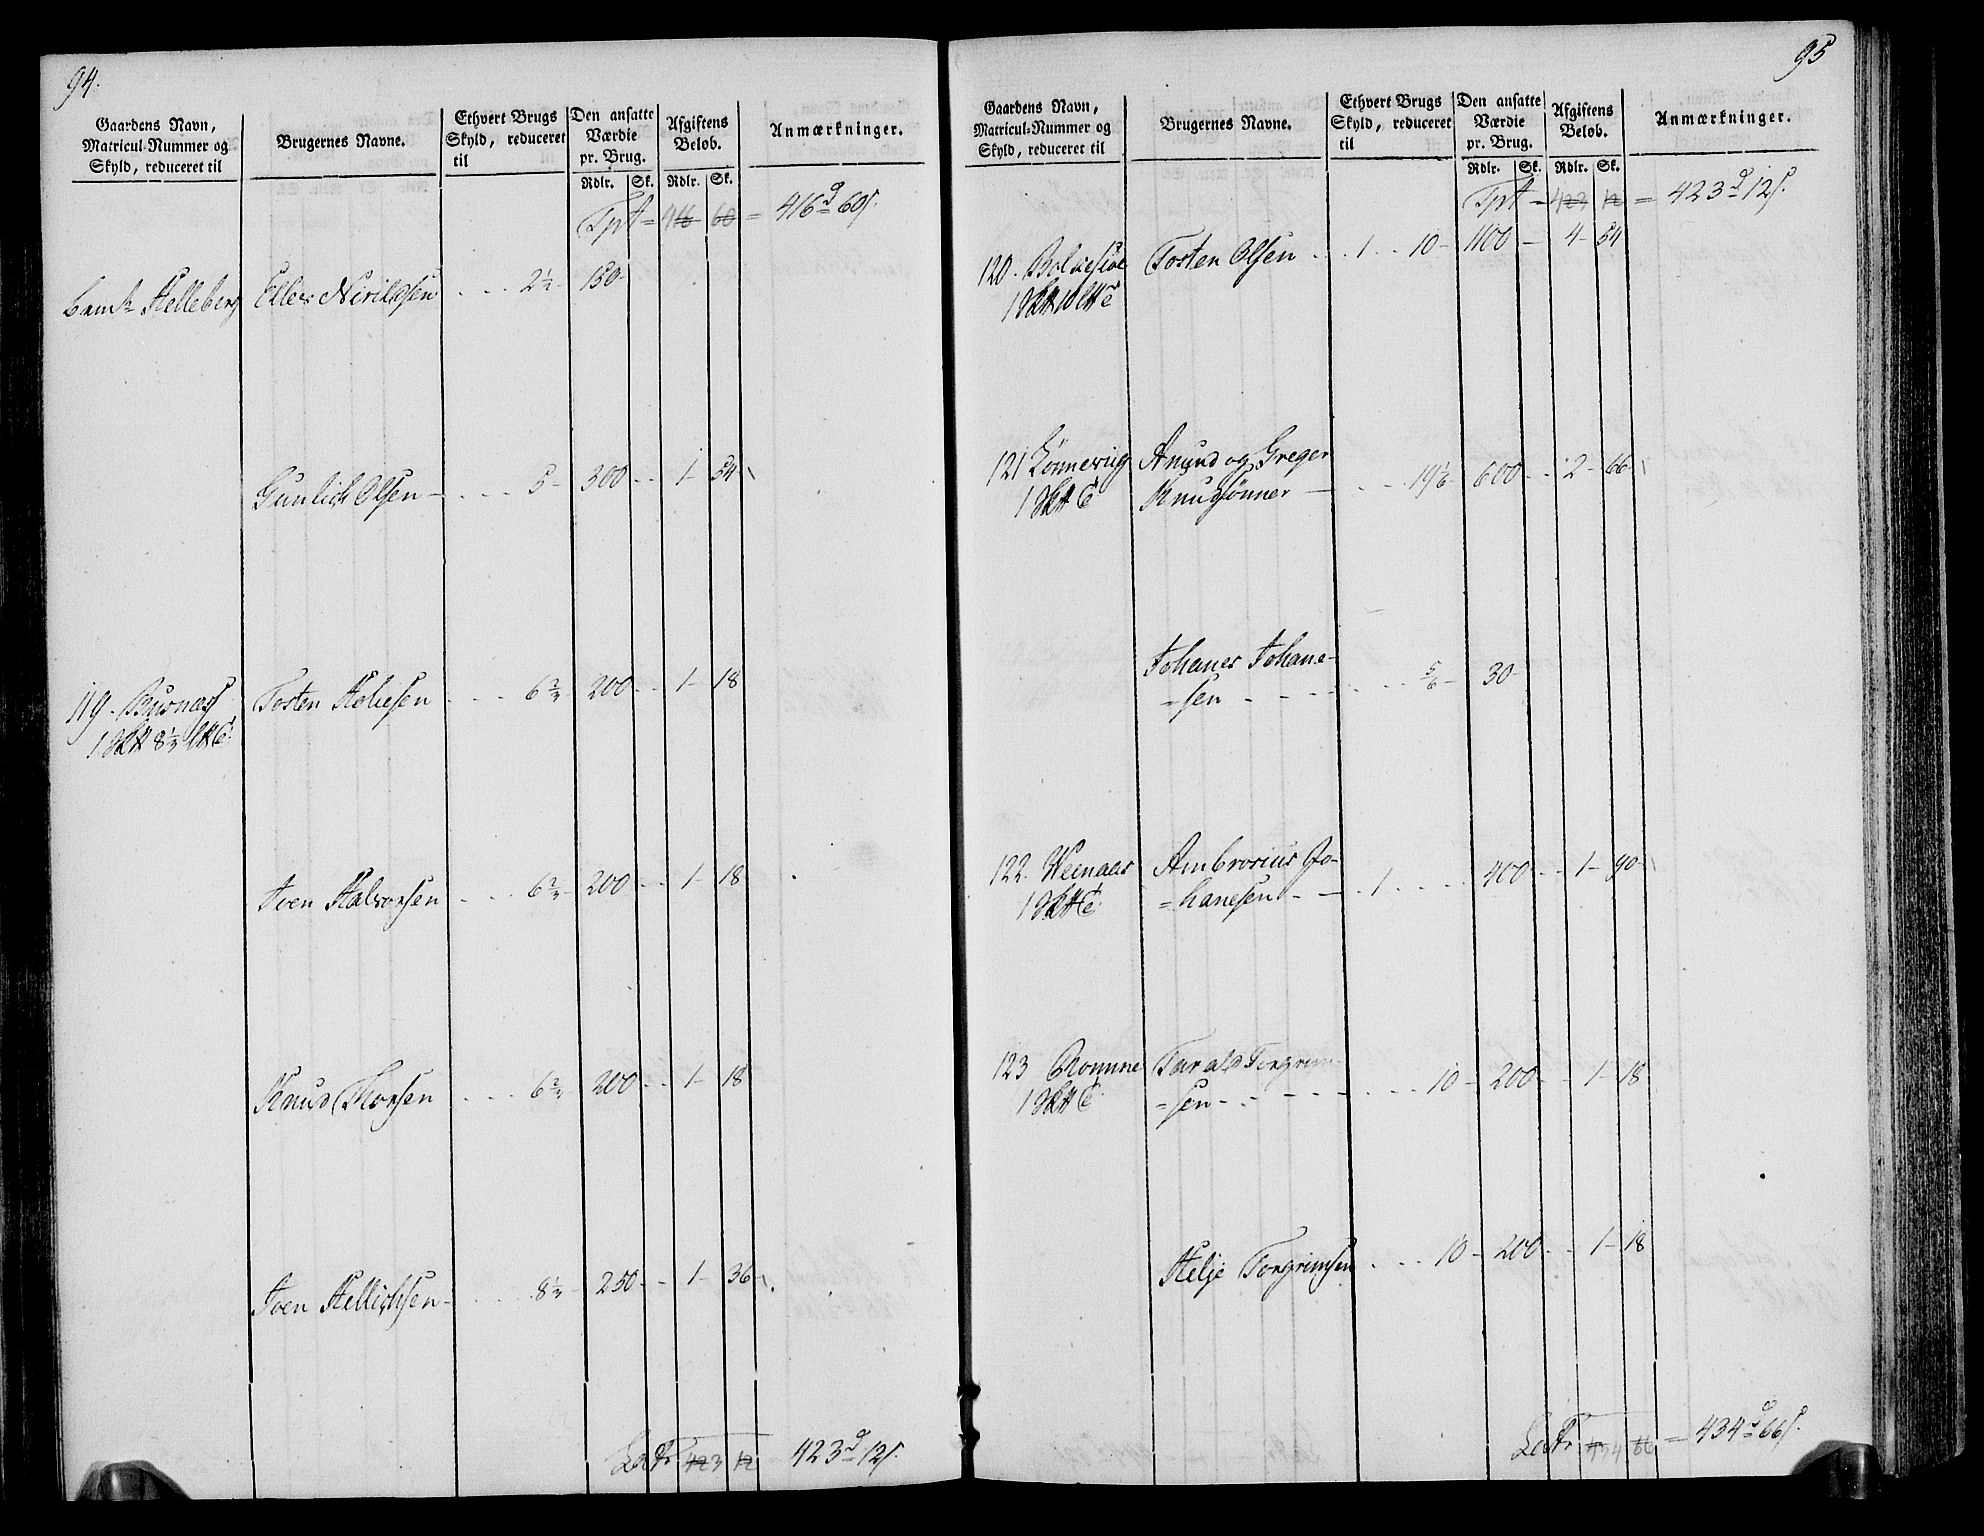 94.
Gaardens Navn, Matricul-Nummer og Skyld, reduceret til
Brugernes Navne.
Ethvert Brugs Skyld, reduceret til
Den ansatte Værdie pr. Brug.
Afgiftens Beløb.
Anmærkninger.
Rdlr. Sk. Rdlr. Sk.
Tpt = 416 60 = 416 d 60 s.
Helleberg 2½ - 150
Gunlich Olsen - 5 - 300 - 1 - 54
119. Busnæs Tosten Holiesen 6⅔ 200 - 1 - 18
8⅓
Iven Halvorsen 6⅔ 200 - 1 - 18
Knud Thorsen 6⅔ 200 - 1 - 18
Iven Hellichsen - 8⅓ 250 - 1 - 36
Latr 423 12 423 d 12 s.
95
Gaardens Navn, Matricul-Nummer og Skyld, reduceret til
Brugernes Navne.
Ethvert Brugs Skyld, reduceret til
Den ansatte Værdie pr. Brug.
Afgiftens Beløb.
Anmærkninger.
Rdlr. Sk. Rdlr. Sk.
Tpt = 423 12 = 423 d 12 s.
120. Tosten Olsen 1 10 - 1100 - 4 - 54
121 Lønnevig Amund og Greger
Knudsønner - 19⅙ 600 - 2 - 66
Johanes Johane-
=sen - 5/6 - 30 -
122. Weenaas Ambrosius Jo-
=hanesen - 1 400 - 1 - 90
123 Romme Tarald Torgrim-
=sen - 10 - 200 - 1 - 18
Helje Torgrimsen 10 - 200 - 1 - 18
Latr 434 66 = 434 d 66 s.